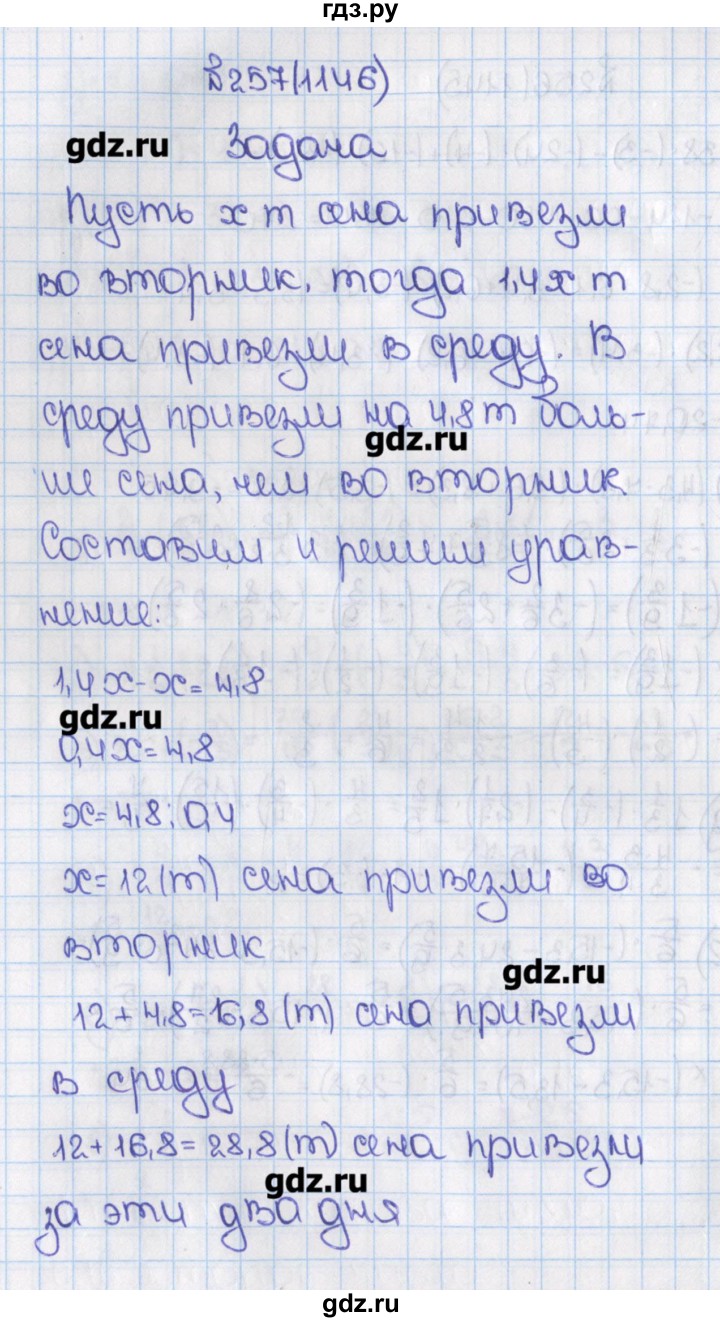 гдз.ру
№257(1146)
gdz.ru Задача
Пусть x т сена привезли
во вторник, тогда 1,4x т
сена привезли в среду. В
среду привезли на 4,8 т боль-
gdz.ru
ше сена, чем во вторник.
Составим и решим урав-
нение:
1,4x-x=4,8
gdz.ru
0,4x=4,8
x=4,8:0,4
x=12(т) сена привезли во
вторник
gdz.ru
12+4,8=16,8(т) сена привезли
в среду
12+16,8=28,8(т) сена привезли
gdz.ru
за эти два дня
gdz.ru